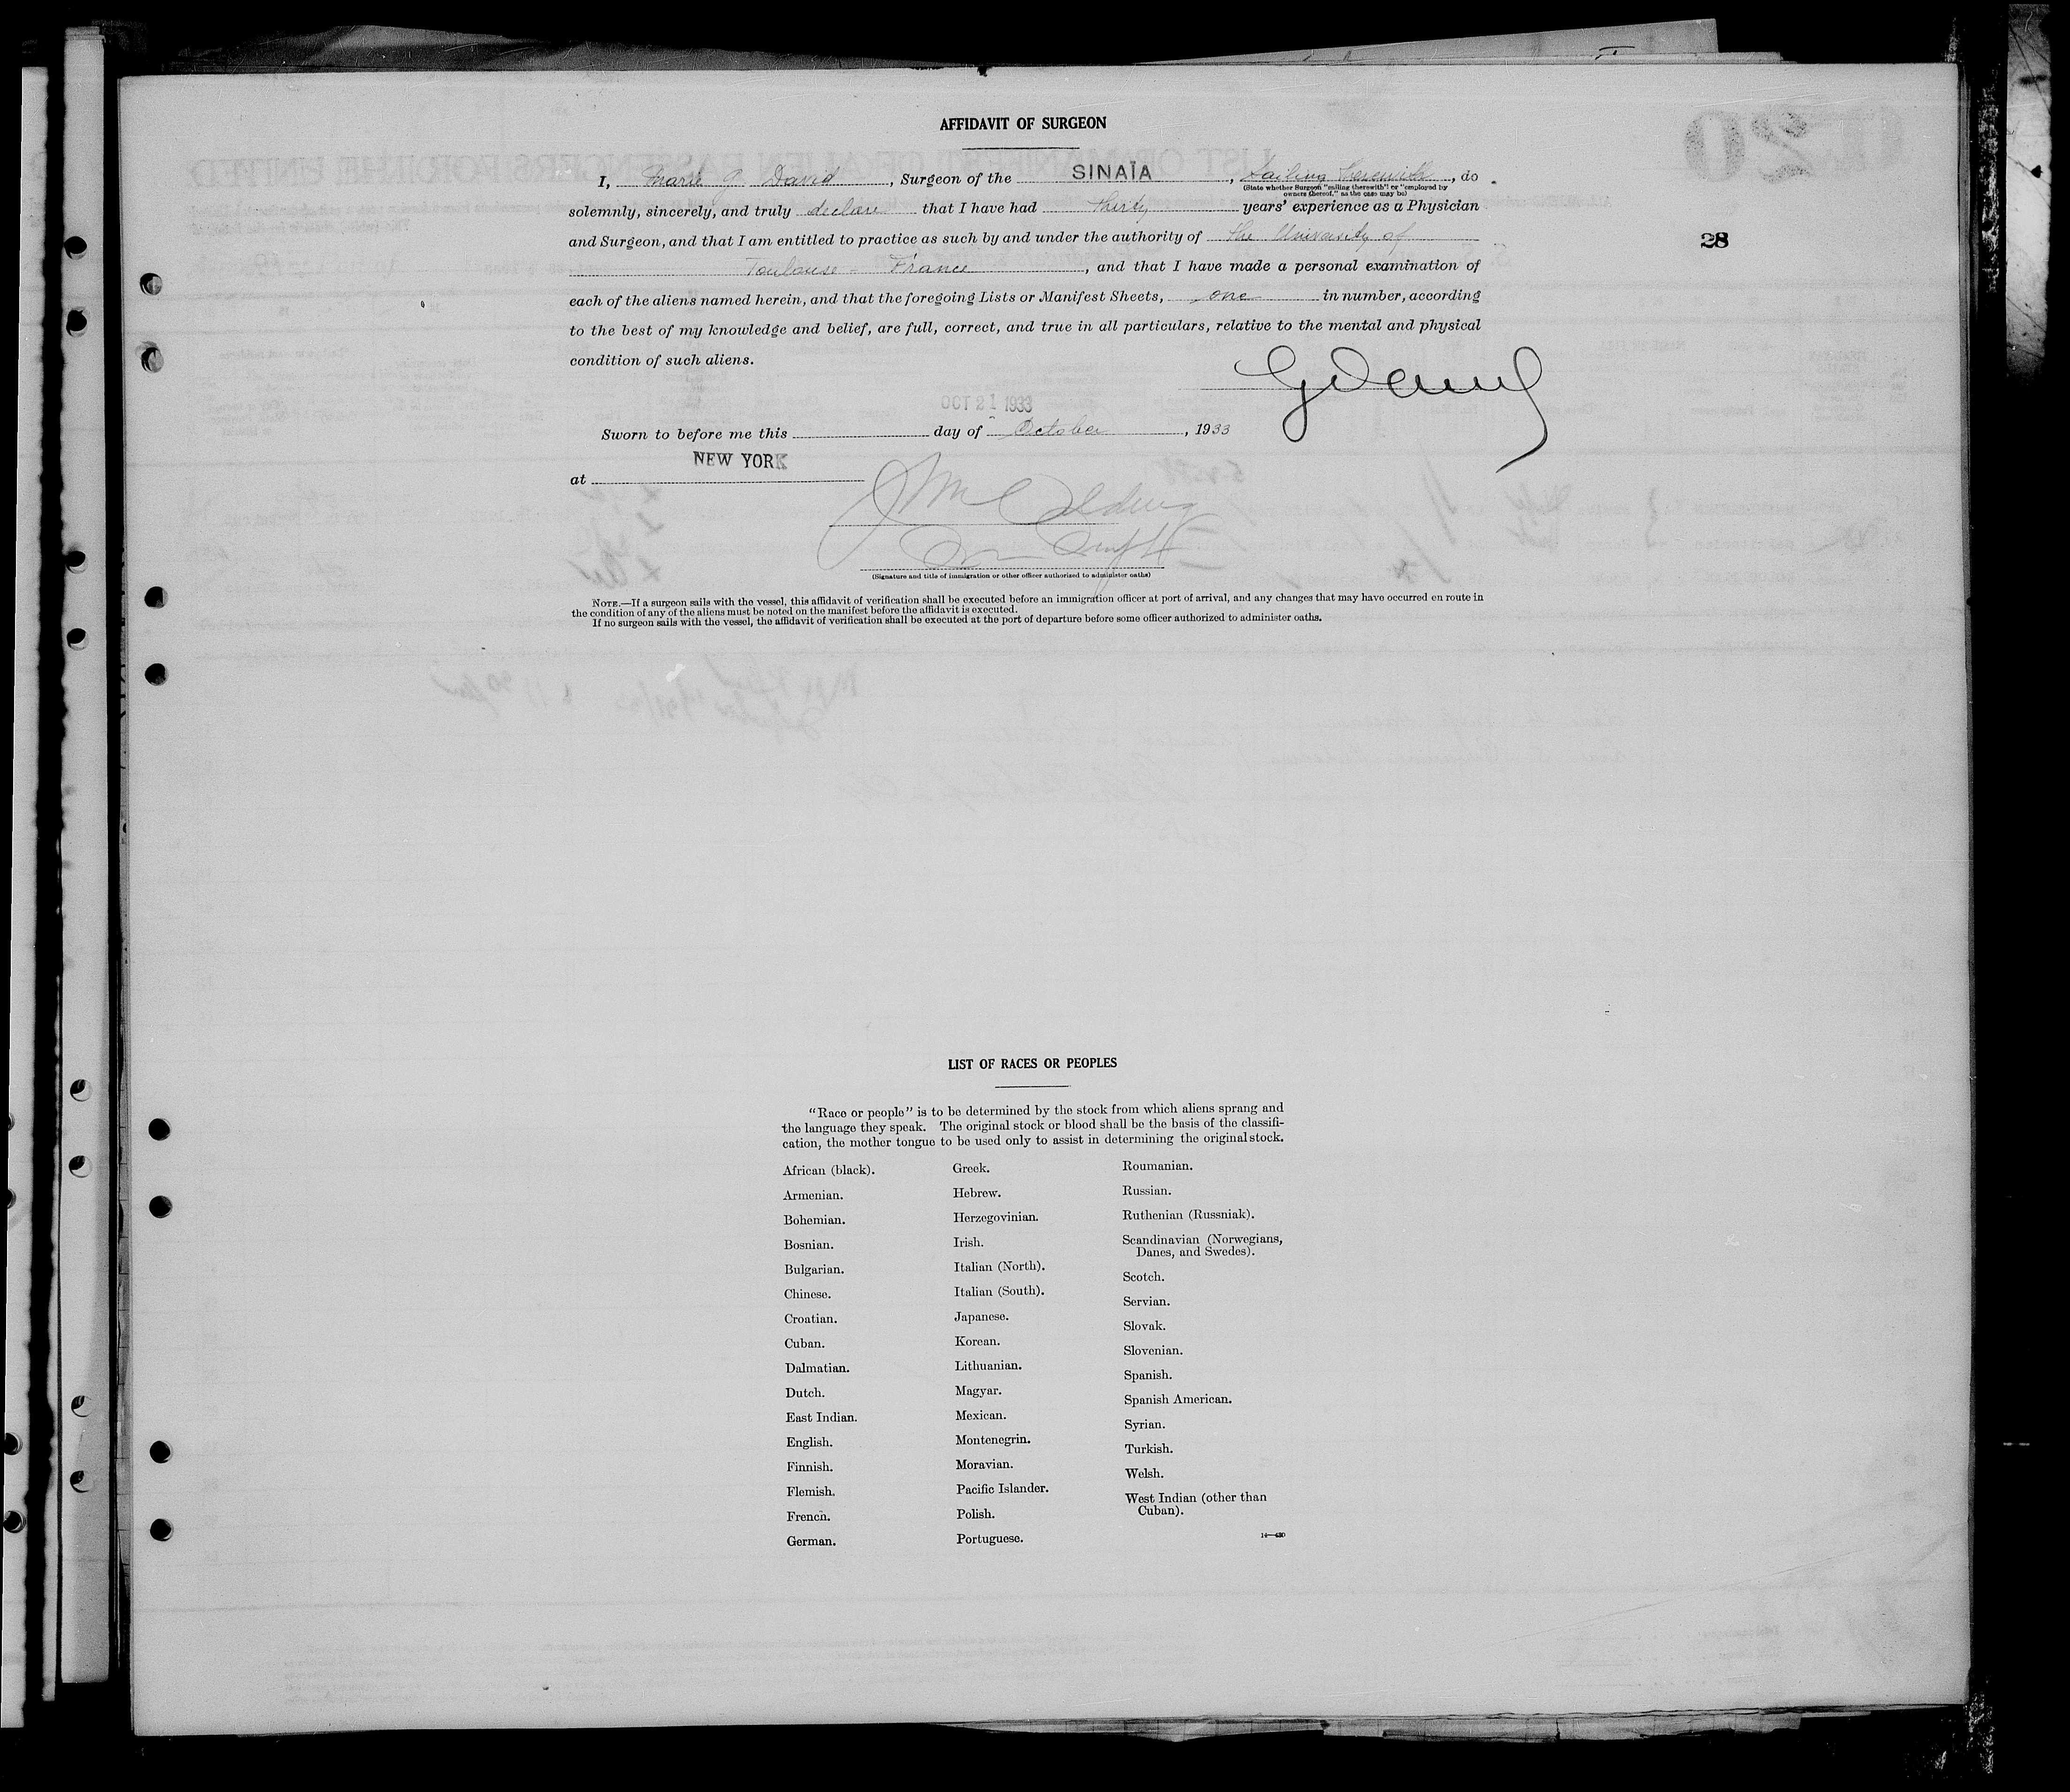 AFFIDAVIT OF SURGEON
I, Marie G. David, Surgeon of the SINAÏA, Sailing therewith, do
(State whether Surgeon "sailing therewith" or "employed by
owners thereof," as the case may be)
solemnly, sincerely, and truly declare that I have had thirty years' experience as a Physician
28
and Surgeon, and that I am entitled to practice as such by and under the authority of the University of
Toulouse - France, and that I have made a personal examination of
each of the aliens named herein, and that the foregoing Lists or Manifest Sheets, one in number, according
to the best of my knowledge and belief, are full, correct, and true in all particulars, relative to the mental and physical
condition of such aliens.
OCT 21 1933
Sworn to before me this day of October, 1933
NEW YORK
at
(Signature and title of immigration or other officer authorized to administer oaths)
NOTE.—If a surgeon sails with the vessel, this affidavit of verification shall be executed before an immigration officer at port of arrival, and any changes that may have occurred en route in
the condition of any of the aliens must be noted on the manifest before the affidavit is executed.
If no surgeon sails with the vessel, the affidavit of verification shall be executed at the port of departure before some officer authorized to administer oaths.
LIST OF RACES OR PEOPLES
"Race or people" is to be determined by the stock from which aliens sprang and
the language they speak. The original stock or blood shall be the basis of the classifi-
cation, the mother tongue to be used only to assist in determining the original stock.
African (black).
Armenian.
Bohemian.
Bosnian.
Bulgarian.
Chinese.
Croatian.
Cuban.
Dalmatian.
Dutch.
East Indian.
English.
Finnish.
Flemish.
French.
German.
Greek.
Hebrew.
Herzegovinian.
Irish.
Italian (North).
Italian (South).
Japanese.
Korean.
Lithuanian.
Magyar.
Mexican.
Montenegrin.
Moravian.
Pacific Islander.
Polish.
Portuguese.
Roumanian.
Russian.
Ruthenian (Russniak).
Scandinavian (Norwegians,
Danes, and Swedes).
Scotch.
Servian.
Slovak.
Slovenian.
Spanish.
Spanish American.
Syrian.
Turkish.
Welsh.
West Indian (other than
Cuban).